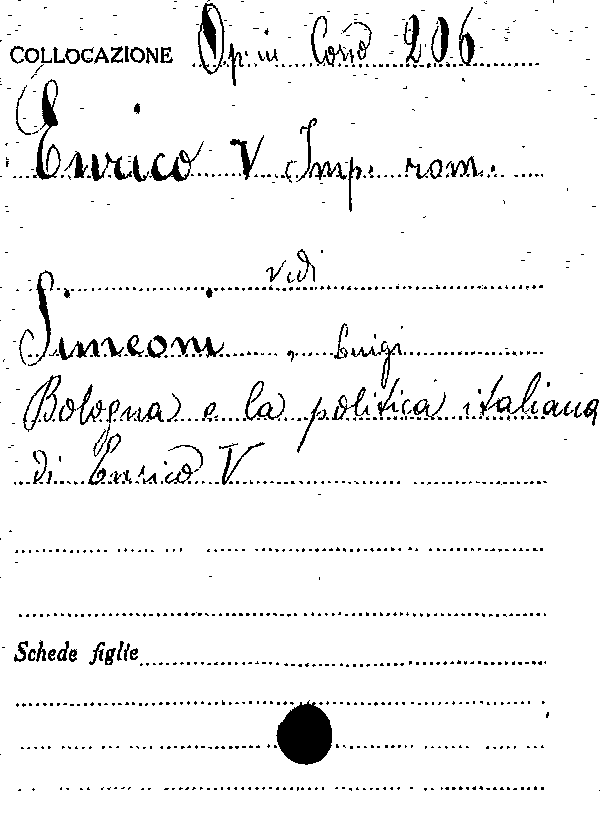 COLLOCAZIONE Op. in Cons 206
Enrico V Imp. rom.
vedi
Simeoni, Luigi
Bologna e la politica italiana
di Enrico V
Schede figlie